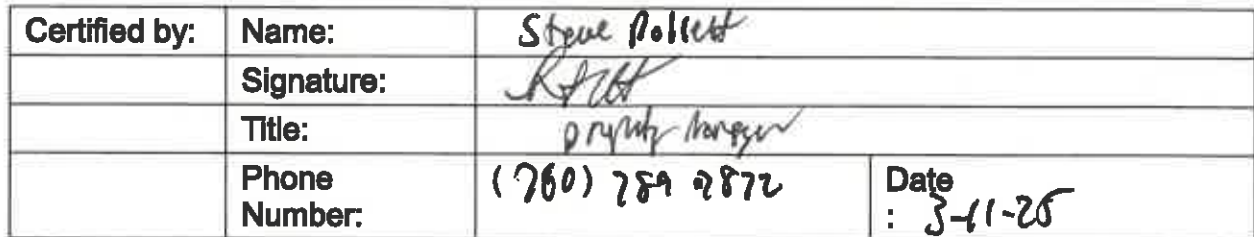 Certified by: Name: Steve Pollett
Signature:
Title: property manager
Phone Number: (760) 789 2872 Date : 3-11-25